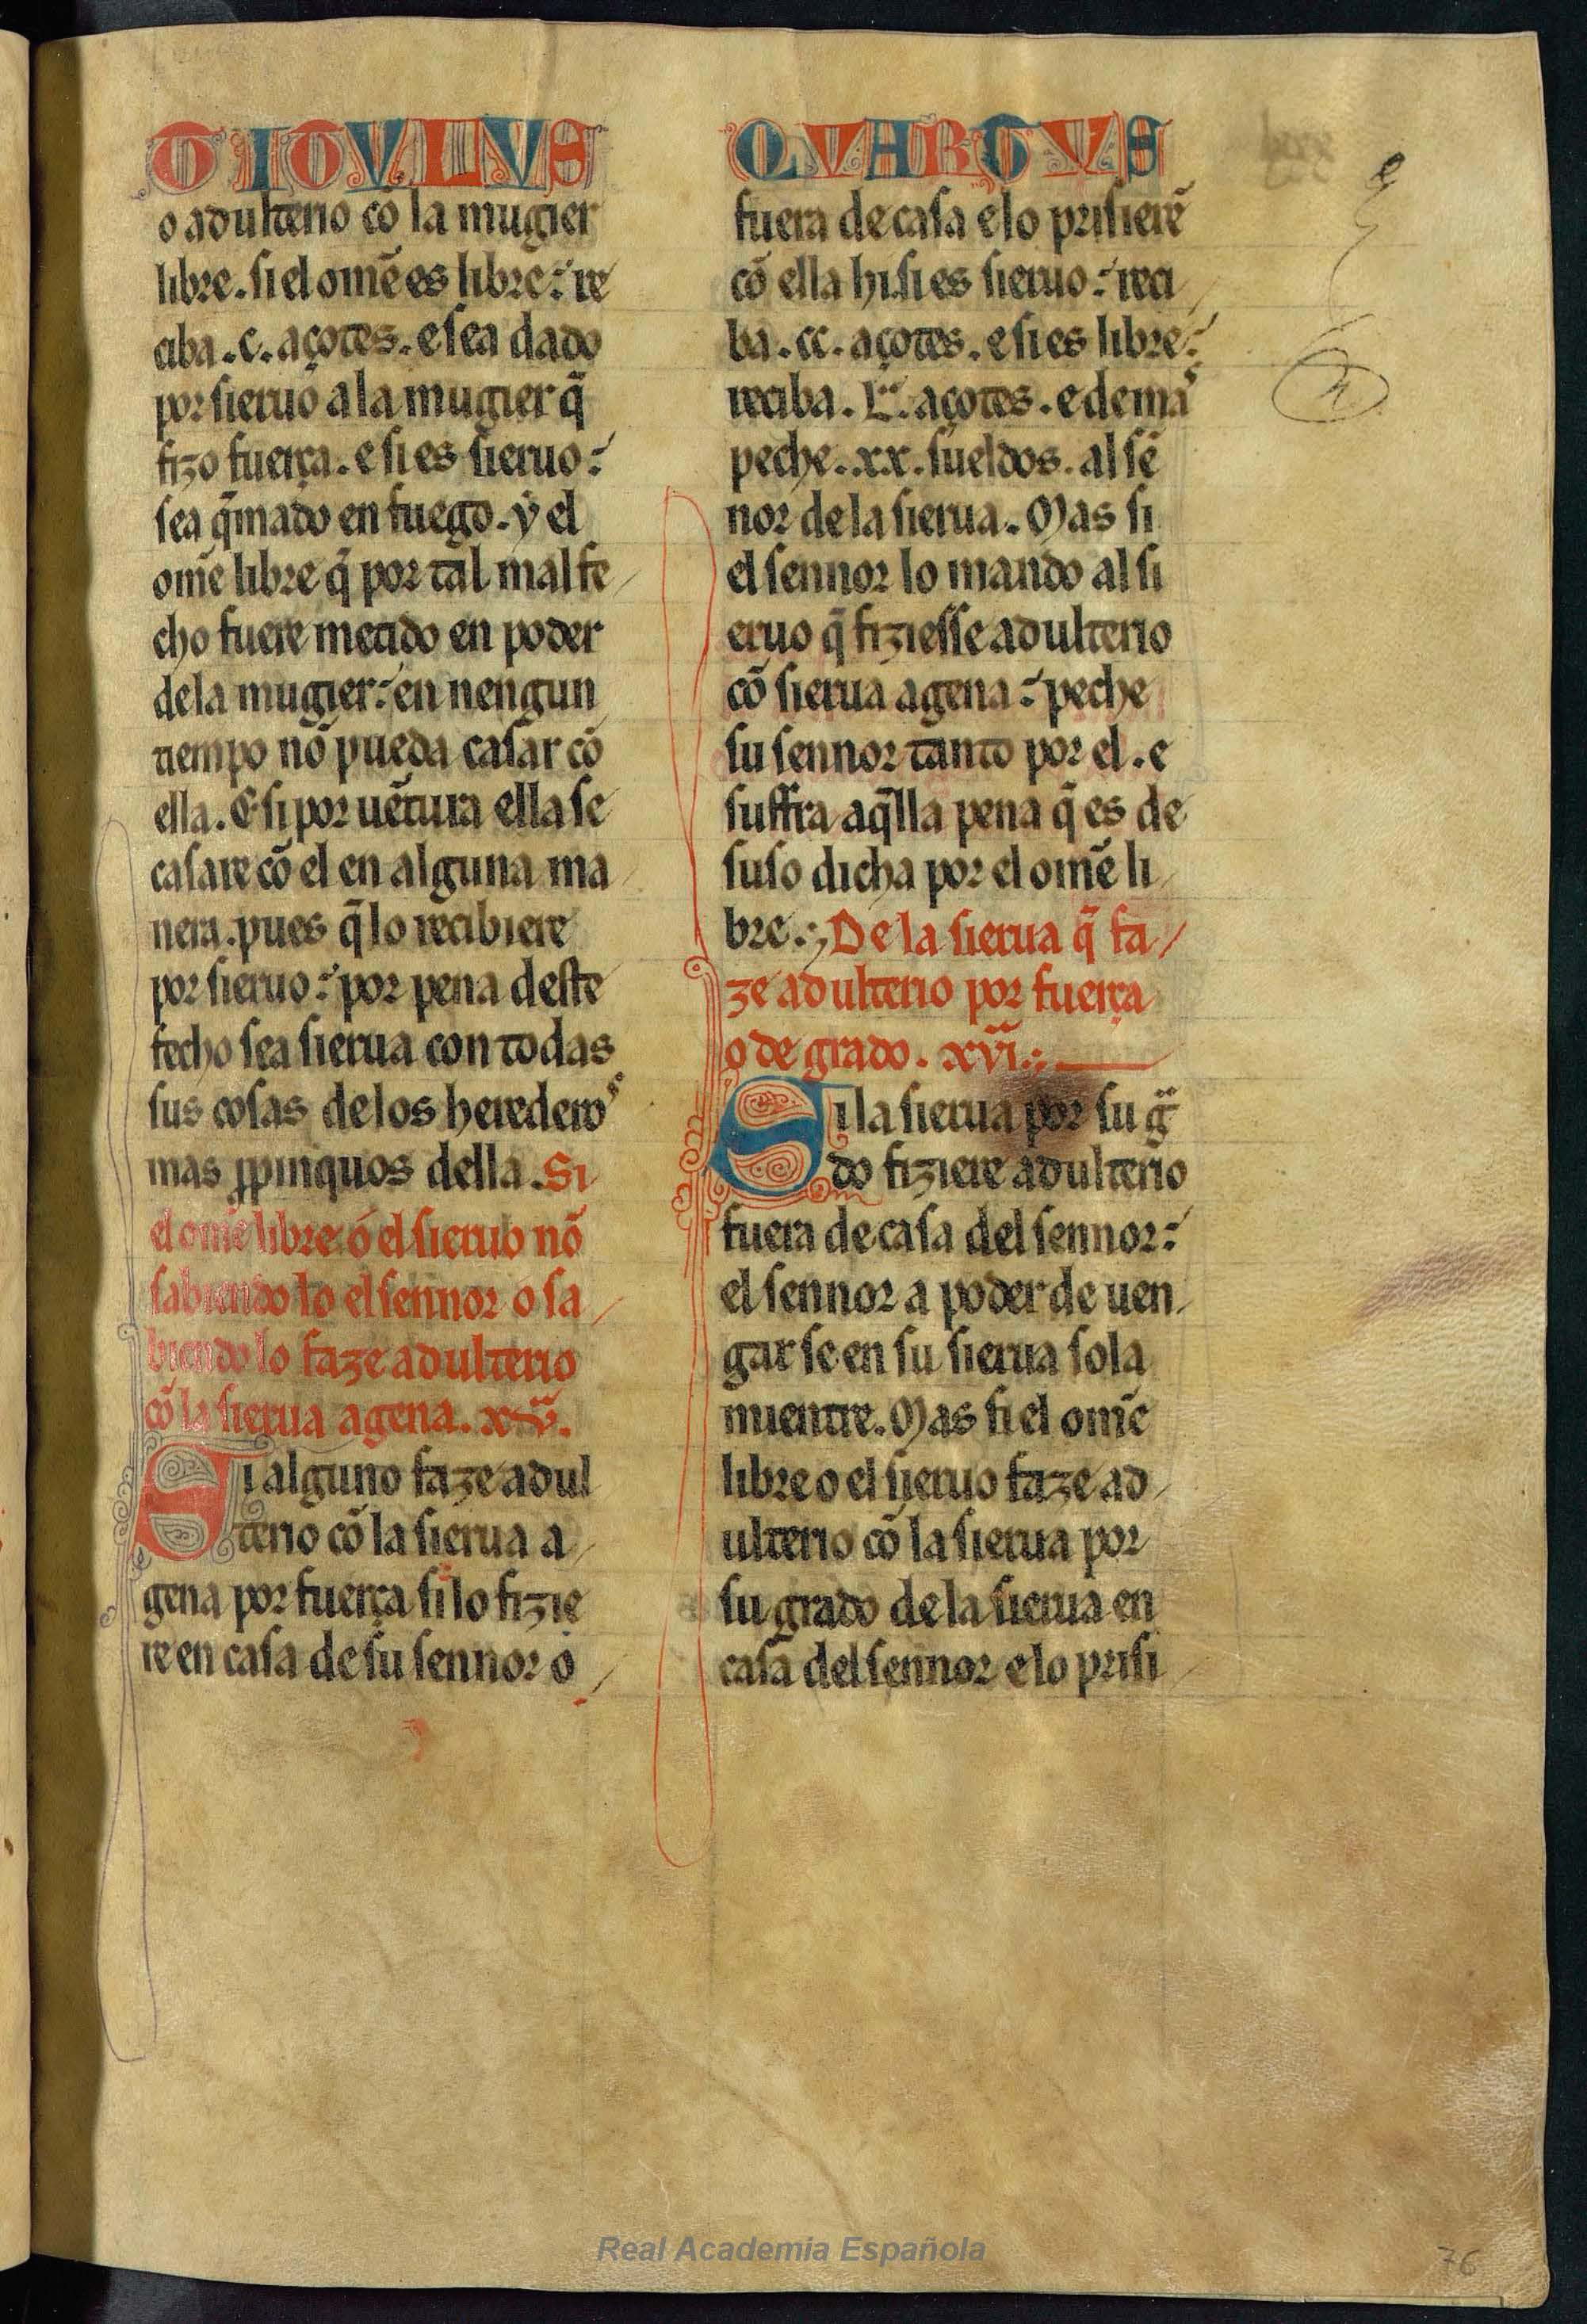 TITVLVS
o adulterio cõ la mugier
libre. si el omẽ es libre: re
ciba .c. açotes. e sea dado
por sieruo a la mugier q̃
fizo fuerça. e si es sieruo:
sea q̃mado en fuego. ẏ el
om̃e libre q̃ por tal mal fe
cho fuere metido en poder
de la mugier: en nengun
tiempo nõ pueda casar cõ
ella. E si por uẽtura ella se
casare cõ el en alguna ma
nera. pues q̃ lo recibiere
por sieruo: por pena deste
fecho sea sierua con todas
sus cosas de los herederoˢ
mas ꝓpinquos della. Si
el om̃e libre ó el sieruo nõ
sabiendo lo el sennor o sa
biendo lo faze adulterio
cõ la sierua agena. xv.
Si alguno faze adul
terio cõ la sierua a
gena por fuerça si lo fizie
re en casa de su sennor o
QVARTVS
fuera de casa e lo prisierẽ
cõ ella hi. si es sieruo: reci
ba .cc. açotes. e si es libre:
reciba .L. açotes. e demaˢ
peche .xx. sueldos. al sẽ
nor de la sierua. Mas si
el sennor lo mando al si
eruo q̃ fiziesse adulterio
cõ sierua agena: peche
su sennor tanto por el. e
suffra aq̃lla pena q̃ es de
suso dicha por el omẽ li
bre. De la sierua q̃ fa
ze adulterio por fuerça
o de grado. xvi.
Si la sierua por su gᵃ
do fiziere adulterio
fuera de casa del sennor:
el sennor a poder de uen
gar se en su sierua sola
mientre. Mas si el om̃e
libre o el sieruo faze ad
ulterio cõ la sierua por
su grado de la sierua en
casa del sennor e lo prisi
Real Academia Española
76